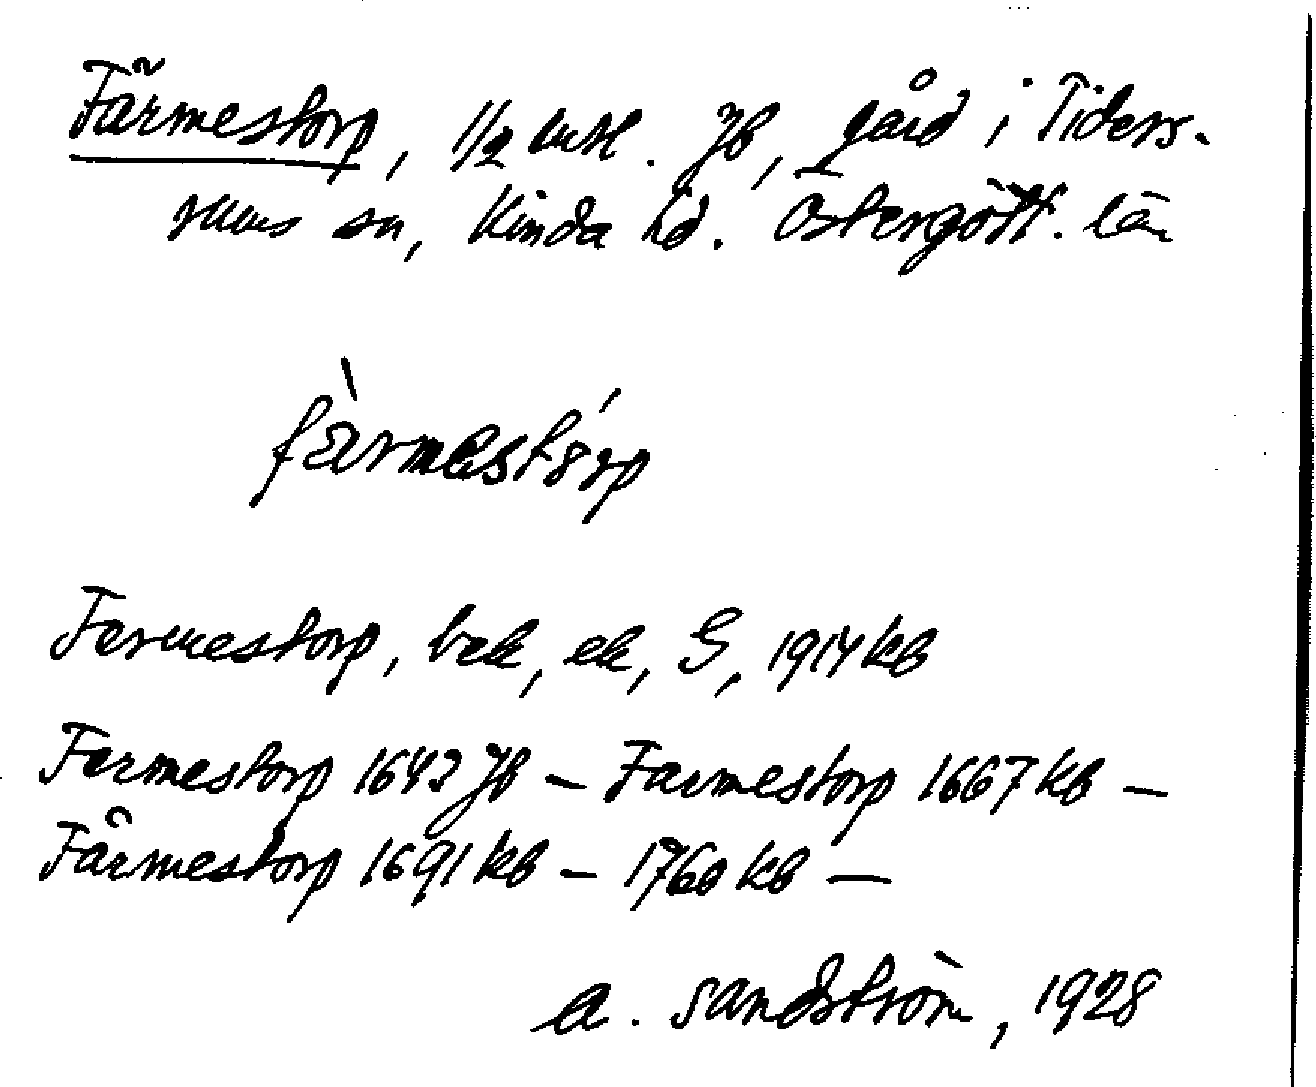 Färmestorp, 1/2 mtl. Jb, gård i Tiders-
rums sn, Kinda hd. Östergötl. län
fàrmestórp
Farmestorp, bek, ek, G, 1914 kb
Farmestorp 1642 Jb – Farmestorp 1667 kb –
Färmestorp 1691 kb – 1760 kb –
A. Sandström, 1928